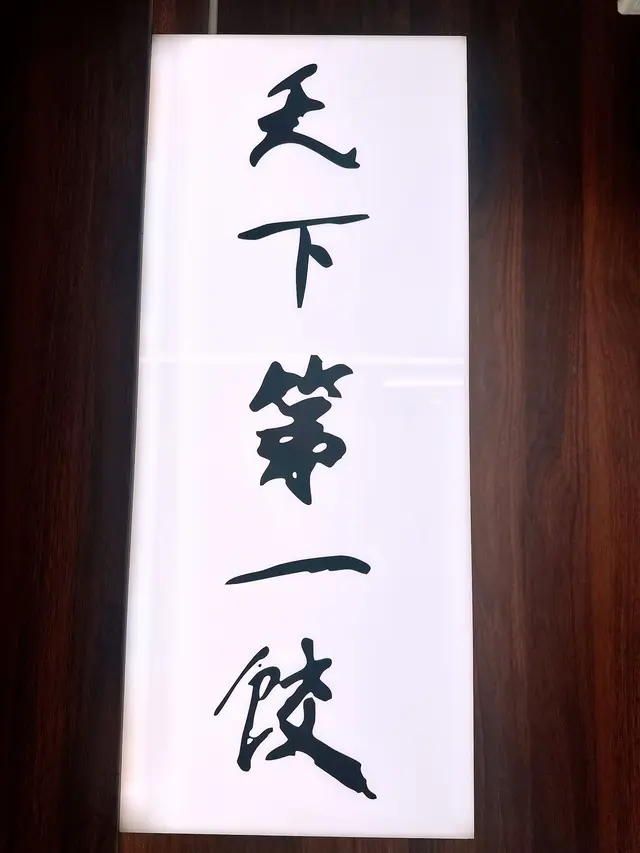 天下第一餃